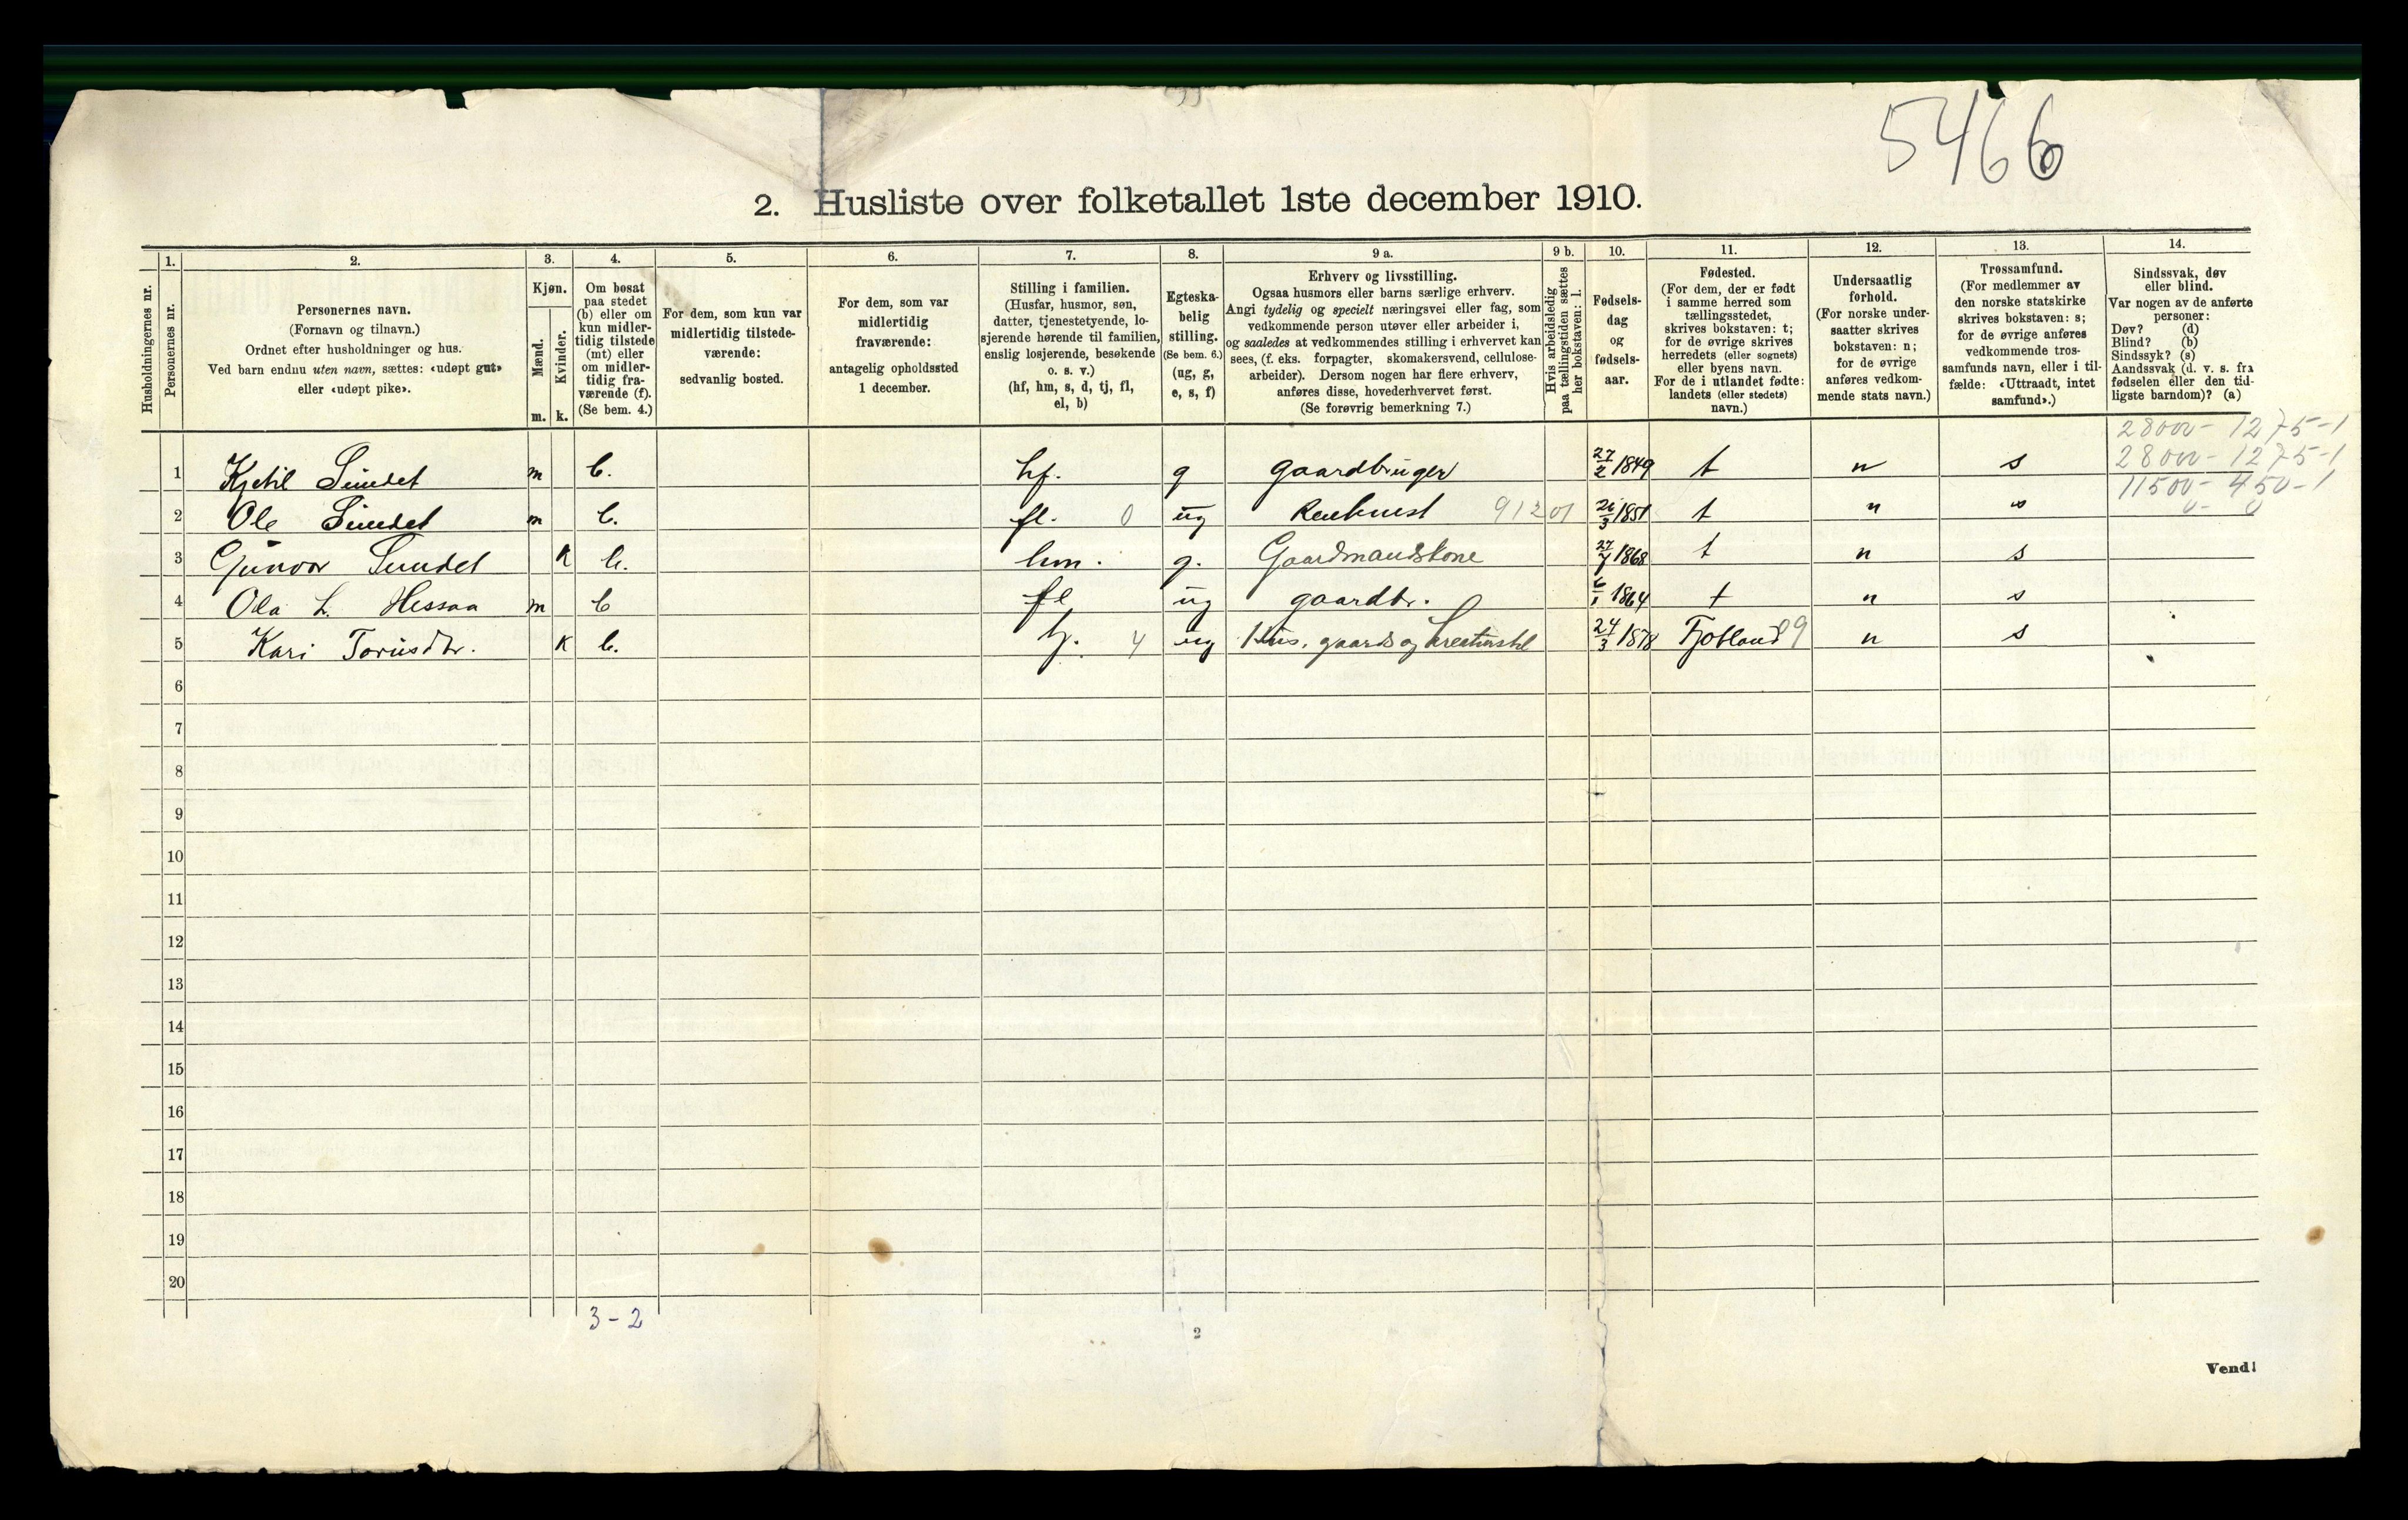 5466
2. Husliste over folketallet 1ste december 1910.
Husholdningernes nr.
1.
Personernes nr.
2.
Personernes navn.
(Fornavn og tilnavn.)
Ordnet efter husholdninger og hus.
Ved barn endnu uten navn, sættes: «udøpt gut»
eller «udøpt pike».
3.
Kjøn.
Mænd.
m.
Kvinder.
k.
4.
Om bosat
paa stedet
(b) eller om
kun midler-
tidig tilstede
(mt) eller
om midler-
tidig fra-
værende (f).
(Se bem. 4.)
5.
For dem, som kun var
midlertidig tilstede-
værende:
sedvanlig bosted.
6.
For dem, som var
midlertidig
fraværende:
antagelig opholdssted
1 december.
7.
Stilling i familien.
(Husfar, husmor, søn,
datter, tjenestetyende, lo-
sjerende hørende til familien,
enslig losjerende, besøkende
o. s. v.)
(hf, hm, s, d, tj, fl,
el, b)
8.
Egteska-
belig
stilling.
(Se bem. 6.)
(ug, g,
e, s, f)
9 a.
Erhverv og livsstilling.
Ogsaa husmors eller barns særlige erhverv.
Angi tydelig og specielt næringsvei eller fag, som
vedkommende person utøver eller arbeider i,
og saaledes at vedkommendes stilling i erhvervet kan
sees, (f. eks. forpagter, skomakersvend, cellulose-
arbeider). Dersom nogen har flere erhverv,
anføres disse, hovederhvervet først.
(Se forøvrig bemerkning 7.)
9 b.
Hvis arbeidsledig
paa tællingstiden sættes
her bokstaven: l.
10.
Fødsels-
dag
og
fødsels-
aar.
11.
Fødested.
(For dem, der er født
i samme herred som
tællingsstedet,
skrives bokstaven: t;
for de øvrige skrives
herredets (eller sognets)
eller byens navn.
For de i utlandet fødte:
landets (eller stedets)
navn.)
12.
Undersaatlig
forhold.
(For norske under-
saatter skrives
bokstaven: n;
for de øvrige
anføres vedkom-
mende stats navn.)
13.
Trossamfund.
(For medlemmer av
den norske statskirke
skrives bokstaven: s;
for de øvrige anføres
vedkommende tros-
samfunds navn, eller i til-
fælde: «Uttraadt, intet
samfund».)
14.
Sindssvak, døv
eller blind.
Var nogen av de anførte
personer:
Døv? (d)
Blind? (b)
Sindssyk? (s)
Aandssvak (d. v. s. fra
fødselen eller den tid-
ligste barndom)? (a)
28000 - 1275-1
28000 - 1275-1
11500 - 450-1
0 - 0
1 Kjetil Sundet m b. hf. g gaardbruger 27/2 1849 t n s
2 Ole Sundet m b. fl. 0 ug 912 01 1851 t n s
3 Gunvor Sundet K b. hm. g. Gaardmandskone 27/7 1868 t n s
4 Ola L. Hessaa m b fl ug gaardbr. 6/1 1864 t n s
5 Kari Torjusdtr. K b. tj. 4 ug Hus, gaards og kreaturstel 24/3 1878 Fjotland 9 n s
6
7
8
9
10
11
12
13
14
15
16
17
18
19
20
3-2
2
Vend!